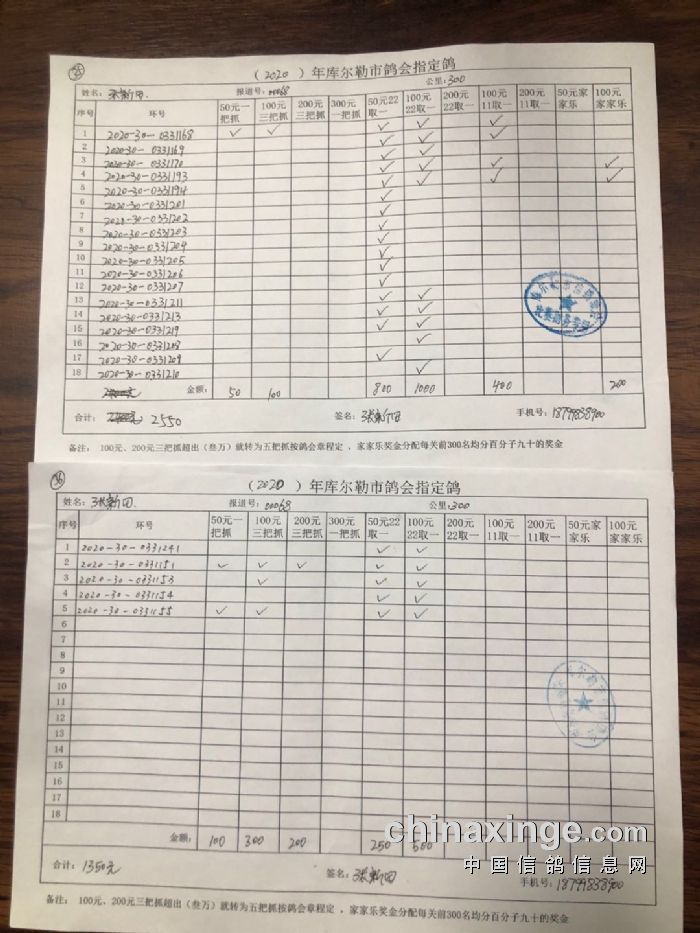 35
(2020)年库尔勒市鸽会指定鸽
姓名: 张新田. 报道号: 00068 公里: 300
序号 环号 50元一把抓 100元三把抓 200元三把抓 300元一把抓 50元22取一 100元22取一 200元22取一 100元11取一 200元11取一 50元家家乐 100元家家乐
1 2020-30-0331168 ✓ ✓ ✓ ✓ ✓
2 2020-30-0331169 ✓ ✓ ✓
3 2020-30-0331170 ✓ ✓
4 2020-30-0331193 ✓ ✓ ✓ ✓
5 2020-30-0331194 ✓ ✓ ✓ ✓
6 2020-30-0331201 ✓
7 2020-30-0331202 ✓
8 2020-30-0331203 ✓
9 2020-30-0331204 ✓
10 2020-30-0331205 ✓
11 2020-30-0331206 ✓
12 2020-30-0331207 ✓
13 2020-30-0331211 ✓ ✓
14 2020-30-0331213 ✓ ✓
15 2020-30-0331219 ✓ ✓
16 2020-30-0331208 ✓
17 2020-30-0331209 ✓
18 2020-30-0331210 ✓
金额: 50 100 800 1000 400 200
合计: 2550 签名: 张新田 手机号: 18799838900
备注: 100元、200元三把抓超出(叁万)就转为五把抓按鸽会章程定,家家乐奖金分配每关前300名均分百分子九十的奖金
36
(2020)年库尔勒市鸽会指定鸽
姓名: 张新田 报道号: 00068 公里: 300
序号 环号 50元一把抓 100元三把抓 200元三把抓 300元一把抓 50元22取一 100元22取一 200元22取一 100元11取一 200元11取一 50元家家乐 100元家家乐
1 2020-30-0331241 ✓ ✓
2 2020-30-0331151 ✓ ✓ ✓ ✓ ✓
3 2020-30-0331153 ✓ ✓ ✓
4 2020-30-0331154 ✓ ✓
5 2020-30-0331155 ✓ ✓ ✓ ✓
6
7
8
9
10
11
12
13
14
15
16
17
18
金额: 100 300 200 250 500
chinaxinge.com
中国信鸽信息网
合计: 1350元 签名: 张新田 手机号: 18799838900
备注: 100元、200元三把抓超出(叁万)就转为五把抓按鸽会章程定,家家乐奖金分配每关前300名均分百分子九十的奖金